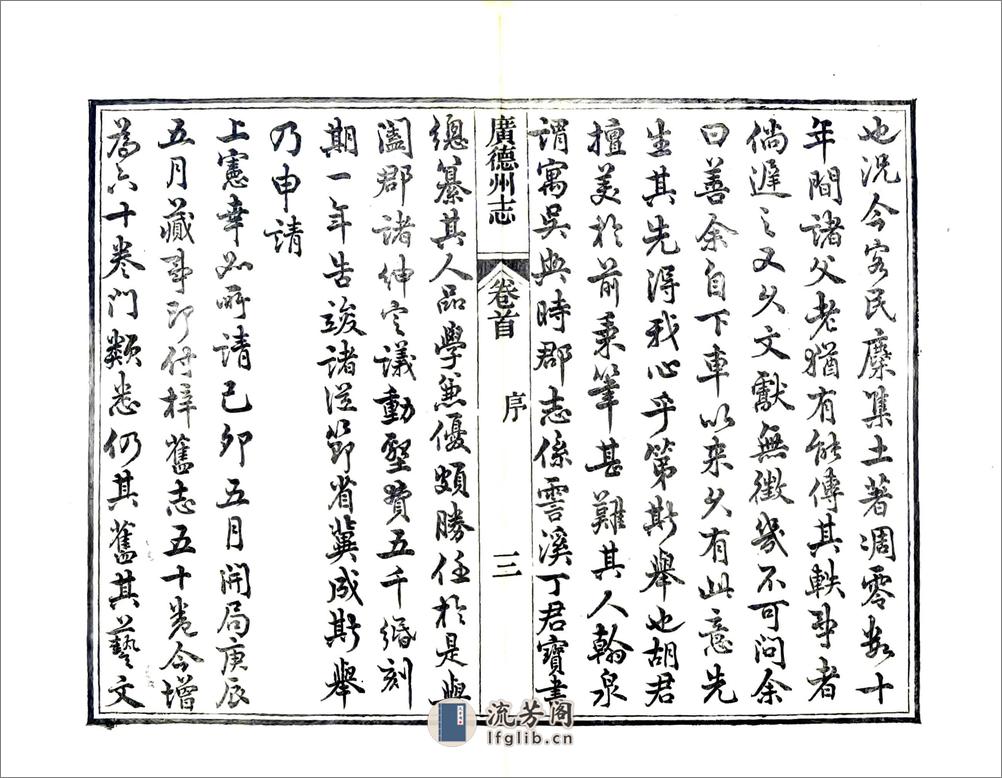 也況今客民麇集土著凋零數十
年間諸父老猶有能傳其軼事者
倘遲之又久文獻無徵幾不可問余
曰善余自下車以來久有此意先
生其先得我心乎第斯舉也胡君
擅美於前秉筆甚難其人翰泉
謂寓吳興時郡志係雲溪丁君寶書
廣德州志 卷首 序 三
總纂其人品學兼優頗勝任於是與
闔郡諸紳定議動墾費五千緡刻
期一年告竣諸從節省冀成斯舉
乃申請
上憲幸如所請己卯五月開局庚辰
五月蕆事即付梓舊志五十卷今增
為六十卷門類悉仍其舊其藝文
流芳阁
lfglib.cn